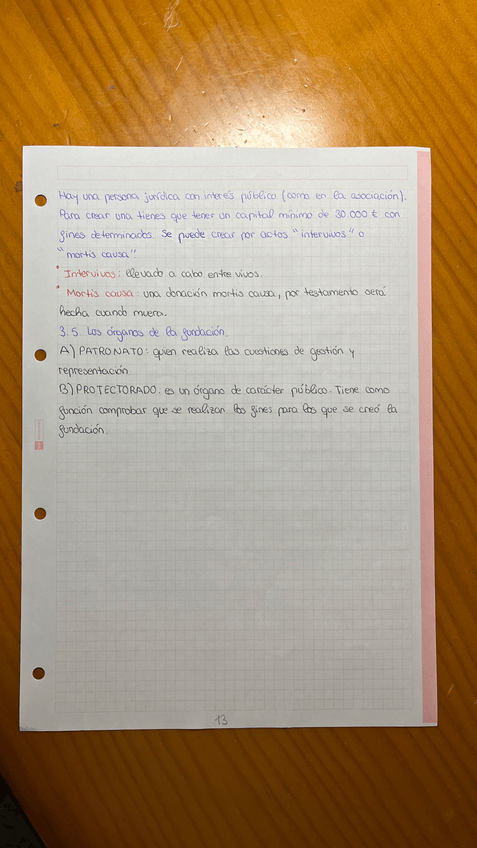 Hay una persona jurídica con interés público (como en la asociación).
Para crear una tienes que tener un capital mínimo de 30.000 € con
fines determinados. Se puede crear por actos "intervivos" o
"mortis causa".
* Intervivos: llevado a cabo entre vivos.
* Mortis causa: una donación mortis causa, por testamento será
hecha cuando muera.
3.5. Los órganos de la fundación.
A) PATRONATO: quien realiza las cuestiones de gestión y
representación
B) PROTECTORADO: es un órgano de carácter público. Tiene como
función comprobar que se realizan los fines para los que se creó la
fundación.
13